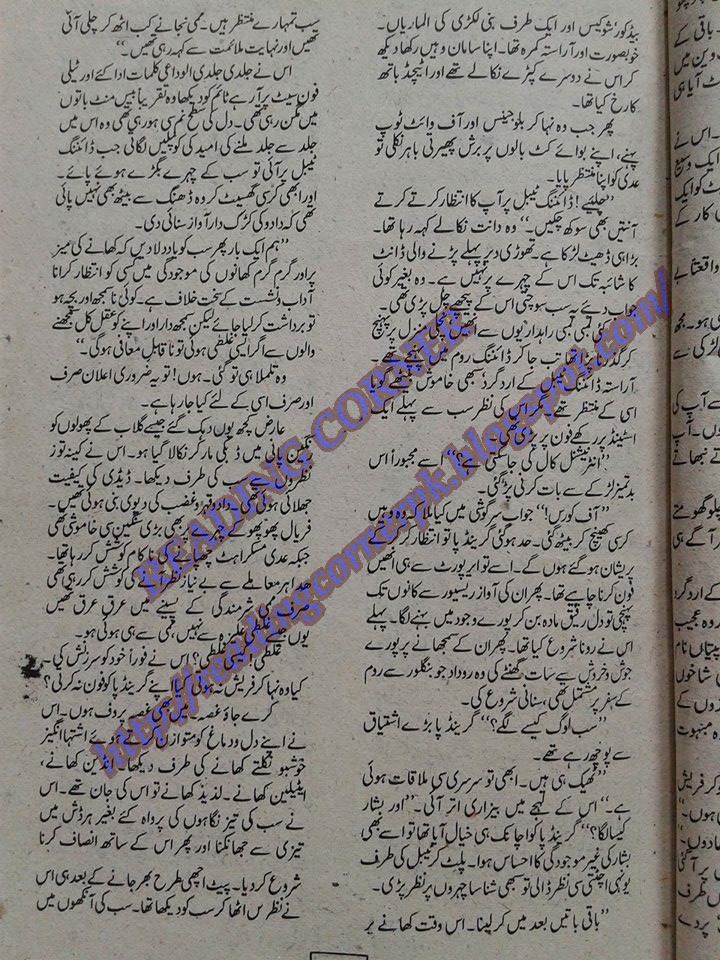 بیڈ کور شوکیس اور ایک طرف بنی لکڑی کی الماریاں۔
خوبصورت اور آراستہ کمرہ تھا۔ اپنا سامان وہیں رکھا دیکھ
کر اس نے دوسرے کپڑے نکالے تھے اور اٹیچڈ باتھ
کا رخ کیا تھا۔
پھر جب وہ نہا کر بلو جینس اور آف وائٹ ٹوپ
پہنے، اپنے بوائے کٹ بالوں پر برش پھیرتی باہر نکلی تو
عدی کو اپنا منتظر پایا۔
”چلیے! ڈائننگ ٹیبل پر آپ کا انتظار کرتے کرتے
آنتیں بھی سوکھ چکیں۔“ وہ دانت نکالے کہہ رہا تھا۔
بڑا ہی ڈھیٹ لڑکا ہے۔ تھوڑی دیر پہلے پڑنے والی ڈانٹ
کا شائبہ تک اس کے چہرے پر نہیں ہے۔ وہ بغیر کوئی
جواب دیے سب سوچتی اس کے پیچھے چل پڑی تھی۔
کئی لمبی لمبی راہداریوں سے انہیں نچلی منزل پر پہنچ
کر گزرنا پڑا تھا تب جا کر ڈائننگ روم میں پہنچے تھے۔
آراستہ ڈائننگ ٹیبل کے ارد گرد سبھی خاموش بیٹھے گویا
اسی کے منتظر تھے۔ مگر اس کی نظر سب سے پہلے ایک
اسٹینڈ پر رکھے فون پر پڑی تھی۔
”انٹرنیشنل کال کی جا سکتی ہے؟“ اسے مجبوراً اس
بدتمیز لڑکے سے بات کرنی پڑ گئی۔
”آف کورس!“ جواب سرگوشی میں کیا ملا کہ وہ وہیں
کرسی کھینچ کر بیٹھ گئی۔ حد ہوگئی گرینڈپا تو انتظار کر کر کے
پریشان ہو گئے ہوں گے۔ اسے تو ایئرپورٹ سے ہی انہیں
فون کرنا چاہیے تھا۔ پھر ان کی آواز ریسیور سے کانوں تک
پہنچی تو دل رقیق مادہ بن کر پورے وجود میں بہنے لگا۔ پہلے
اس نے رونا شروع کیا تھا۔ پھر ان کے سمجھانے پر پورے
جوش و خروش سے سات گھنٹے کی وہ روداد جو بنگلور سے روم
کے سفر پر مشتمل تھی، سنانی شروع کی۔
”سب لوگ کیسے لگے؟“ گرینڈپا بڑے اشتیاق
سے پوچھ رہے تھے۔
”ٹھیک ہی ہیں۔ ابھی تو سرسری سی ملاقات ہوئی
ہے۔“ اس کے لہجے میں بیزاری اتر آئی۔ ”اور بشار
کیسا لگا؟“ گرینڈپا کو اچانک ہی خیال آیا تھا تو اسے بھی
بشار کی غیر موجودگی کا احساس ہوا۔ پلٹ کر ٹیبل کی طرف
یونہی اچٹتی سی نظر ڈالی تو سبھی شناسا چہروں پر نظر پڑی۔
”باقی باتیں بعد میں کر لینا۔ اس وقت کھانے پر
سب تمہارے منتظر ہیں۔ ممی نجانے کب اٹھ کر چلی آئی
تھیں اور نہایت ملائمت سے کہہ رہی تھیں۔“
اس نے جلدی جلدی الوداعی کلمات ادا کئے اور ٹیلی
فون سیٹ پر آرہے ٹائم کو دیکھا وہ تقریباً بیس منٹ باتوں
میں مگن رہی تھی۔ دل کی سطح نم سی ہو رہی تھی وہ اس میں
جلد سے جلد ملنے کی امید کی کونپلیں لگاتی جب ڈائننگ
ٹیبل پر آئی تو سب کے چہرے بگڑے ہوئے پائے۔
اور ابھی کرسی گھسیٹ کر وہ ڈھنگ سے بیٹھ بھی نہیں پائی
تھی کہ دادو کی کڑک دار آواز سنائی دی۔
”ہم ایک بار پھر سب کو یاد دلا دیں کہ کھانے کی میز
پر اور گرم گرم کھانوں کی موجودگی میں کسی کو انتظار کرانا
آداب و نشست کے سخت خلاف ہے۔ کوئی ناسمجھ اور بچہ ہو
تو برداشت کر لیا جائے لیکن سمجھ دار اور اپنے کو عقل کل سمجھنے
والوں سے اگر ایسی غلطی ہوئی تو ناقابل معافی ہوگی۔“
وہ تلملا ہی تو گئی۔ ہوں! تو یہ ضروری اعلان صرف
اور صرف اسی کے لئے کیا جا رہا ہے۔
عارض کچھ یوں دہک گئے جیسے گلاب کے پھولوں کو
نمکین پانی میں ڈبکی مار کر نکالا گیا ہو۔ اس نے کینہ توز
نظروں سے سب کی طرف دیکھا۔ ڈیڈی کی کیفیت
جھلائی ہوئی تھی۔ دادو قہر و غضب کی دیوی بنی ہوئی تھیں۔
فریال پھوپھو کے چہرے پر بھی بڑی سنگین سی خاموشی تھی
جبکہ عدی مسکراہٹ چھپانے کی ناکام کوشش کر رہا تھا۔
ہدا ہر معاملے سے بے نیاز نظر آنے کی کوشش کر رہی تھی
صرف ممی شرمندگی کے پسینے میں عرق عرق تھیں
یوں جیسے غلطی علیزہ سے نہیں، ممی سے ہی ہوئی ہو۔
غلطی! کیسی غلطی؟ اس نے فوراً خود کو سرزنش کی۔
کیا وہ نہا کر فریش نہ ہوتی؟ کیا اپنے گرینڈپا کو فون نہ کرتی؟
کرے جاؤ غصہ، میں بھی غصہ پروف ہوں۔ اس
نے اپنے دل و دماغ کو متوازن کرتے ہوئے اشتہا انگیز
خوشبو نکلتے کھانے کی طرف دیکھا۔ انڈین کھانے،
اٹیلین کھانے۔ لذیذ کھانے تو اس کی جان تھے۔ اس
نے سب کی تیز نگاہوں کی پرواہ کئے بغیر ہر ڈش میں
تیزی سے جھانکنا اور پھر اس کے ساتھ انصاف کرنا
شروع کر دیا۔ پیٹ اچھی طرح بھر جانے کے بعد ہی اس
نے نظریں اٹھا کر سب کو دیکھا تھا۔ سب کی آنکھوں میں
READING CORNER
http://readingcornerpk.blogspot.com/